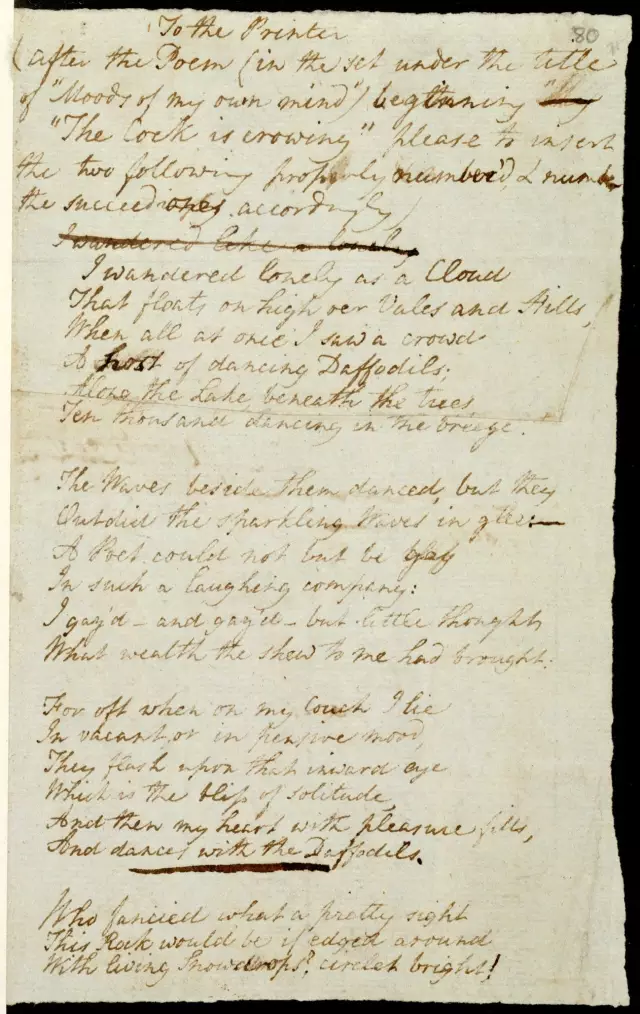 80
To the Printer
(after the Poem (in the set under the title
of "Moods of my own mind") beginning
"The Cock is crowing" please to insert
the two following properly number'd & number
the succeeding ones accordingly)
I wandered like a lonely
I wandered lonely as a Cloud
That floats on high oer Vales and Hills,
When all at once I saw a crowd
A host of dancing Daffodils;
Along the Lake, beneath the trees,
Ten thousand dancing in the breeze.
The Waves beside them danced, but they
Outdid the sparkling Waves in glee:—
A Poet could not but be gay
In such a laughing company:
I gaz'd – and gaz'd – but little thought
What wealth the shew to me had brought:
For oft when on my Couch I lie
In vacant, or in pensive mood,
They flash upon that inward eye
Which is the bliss of solitude,
And then my heart with pleasure fills,
And dances with the Daffodils.
Who fancied what a pretty sight
This Rock would be if edged around
With living Snowdrops? circlet bright!